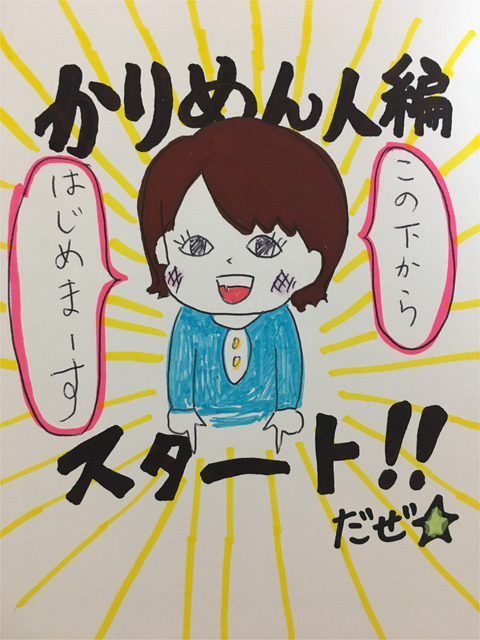 かりめん人編
この下から
はじめまーす
スタート!!
だぜ☆